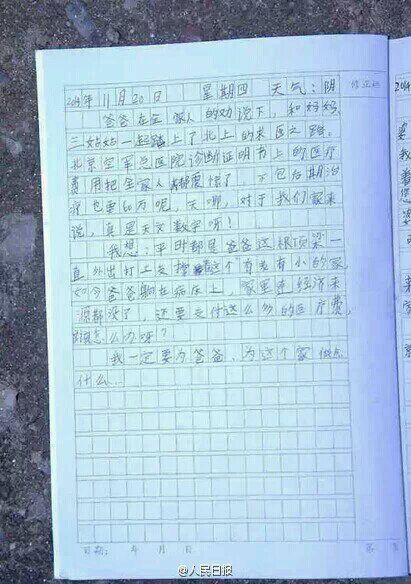 2014年11月20日 星期四 天气:阴
修正栏
爸爸在全家人的劝说下,和妈妈、
三姑姑一起踏上了北上的求医之路。
北京空军总医院诊断证明书上的医疗
费用把全家人都震惊了,不包后期治
疗也要60万呢,天哪,对于我们家来
说,真是天文数字呀!
我想:平时都是爸爸这根顶梁一
直外出打工支撑着这个有老有小的家,
如今爸爸躺在病床上,家里连经济来
源都没了,还要支付这么多的医疗费,
怎么办呀?
我一定要为爸爸、为这个家做点
什么…
日期: 年 月 日
第 页
2014
@人民日报